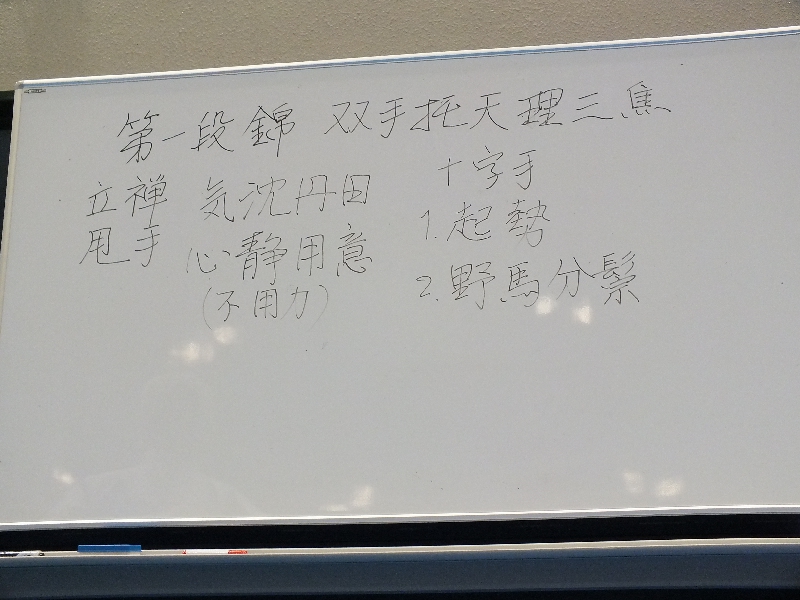 第一段錦 双手托天理三焦
立禅 気沈丹田
甩手 心静用意
(不用力)
十字手
1. 起勢
2. 野馬分鬃